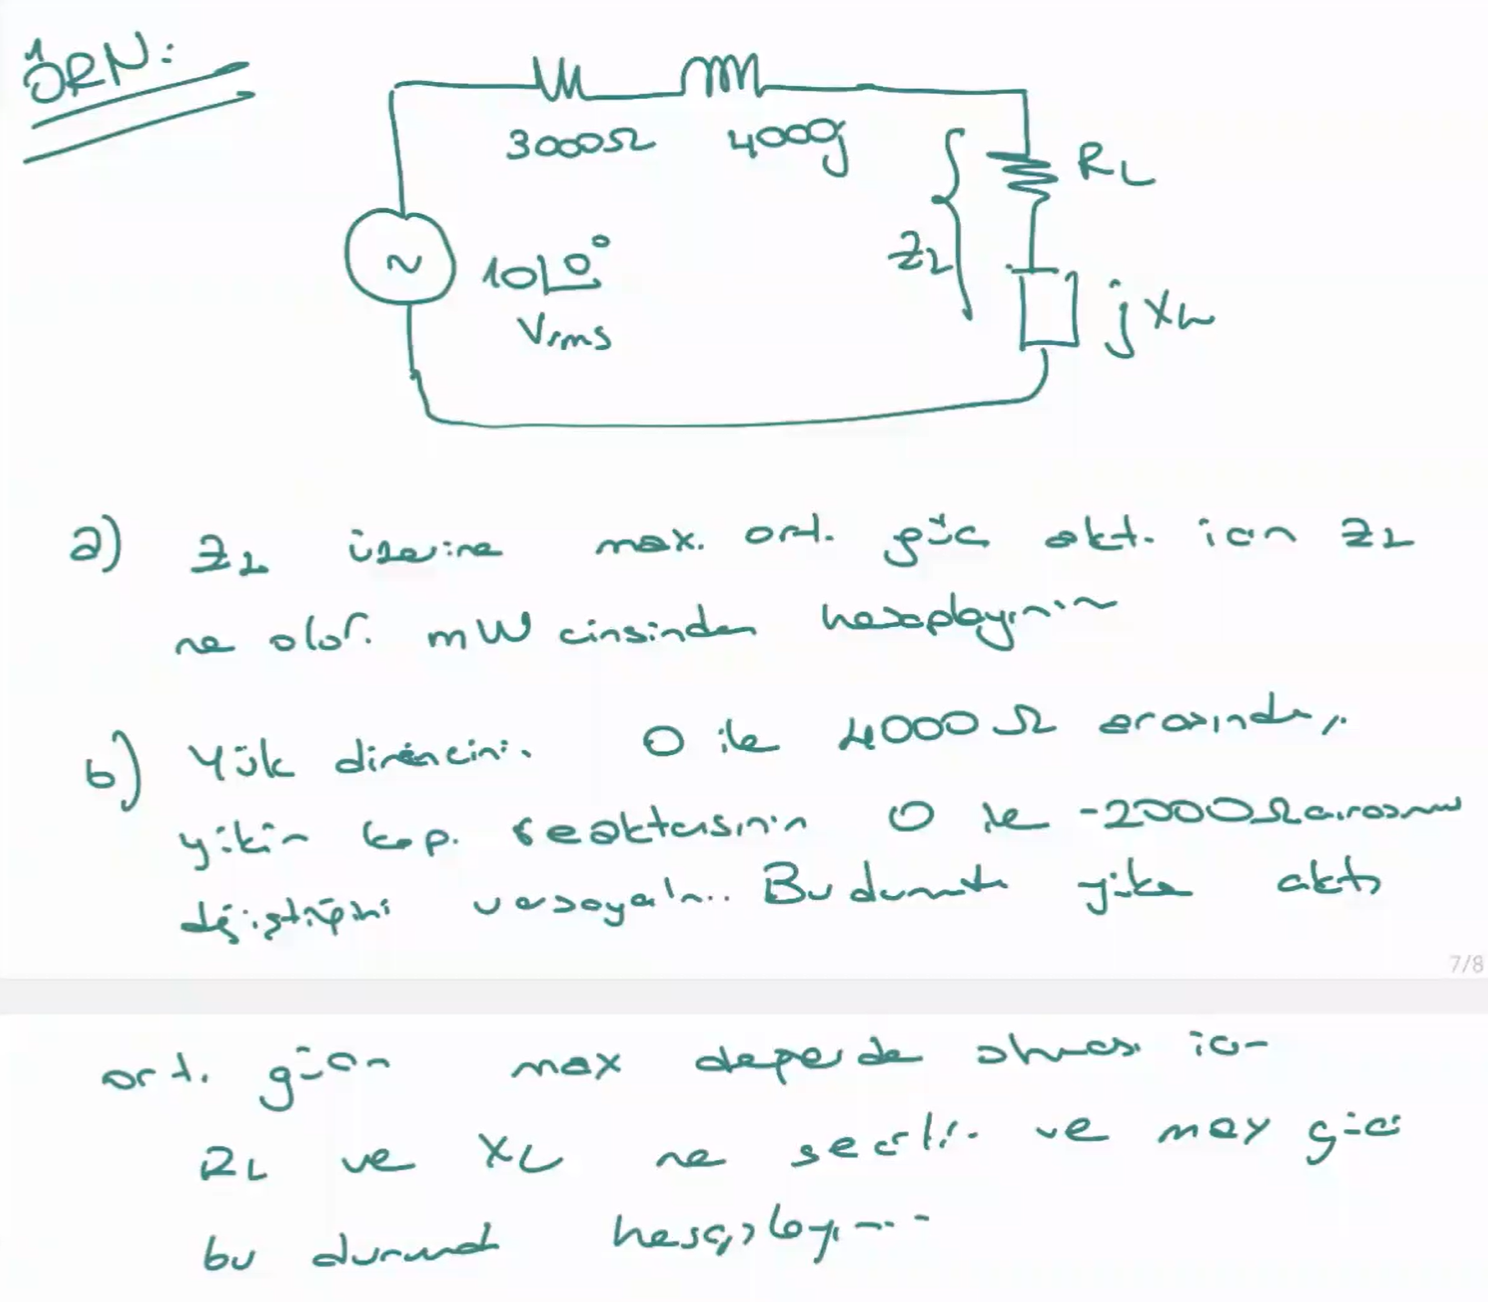 ÖRN:
3000Ω 4000j
RL
ZL
10∠0°
Vrms
jXL
a) ZL üzerine max. ort. güç akt. için ZL
ne olur. mW cinsinden hesaplayınız
b) Yük direncini. 0 ile 4000Ω arasında,
yükün kap. reaktansının 0 ile -2000Ω arasında
değiştiğini varsayalım. Bu durumda yüke
7/8
ort. gücün max değerde olması için
RL ve XL ne seçilir. ve max gücü
bu durumda hesaplayınız